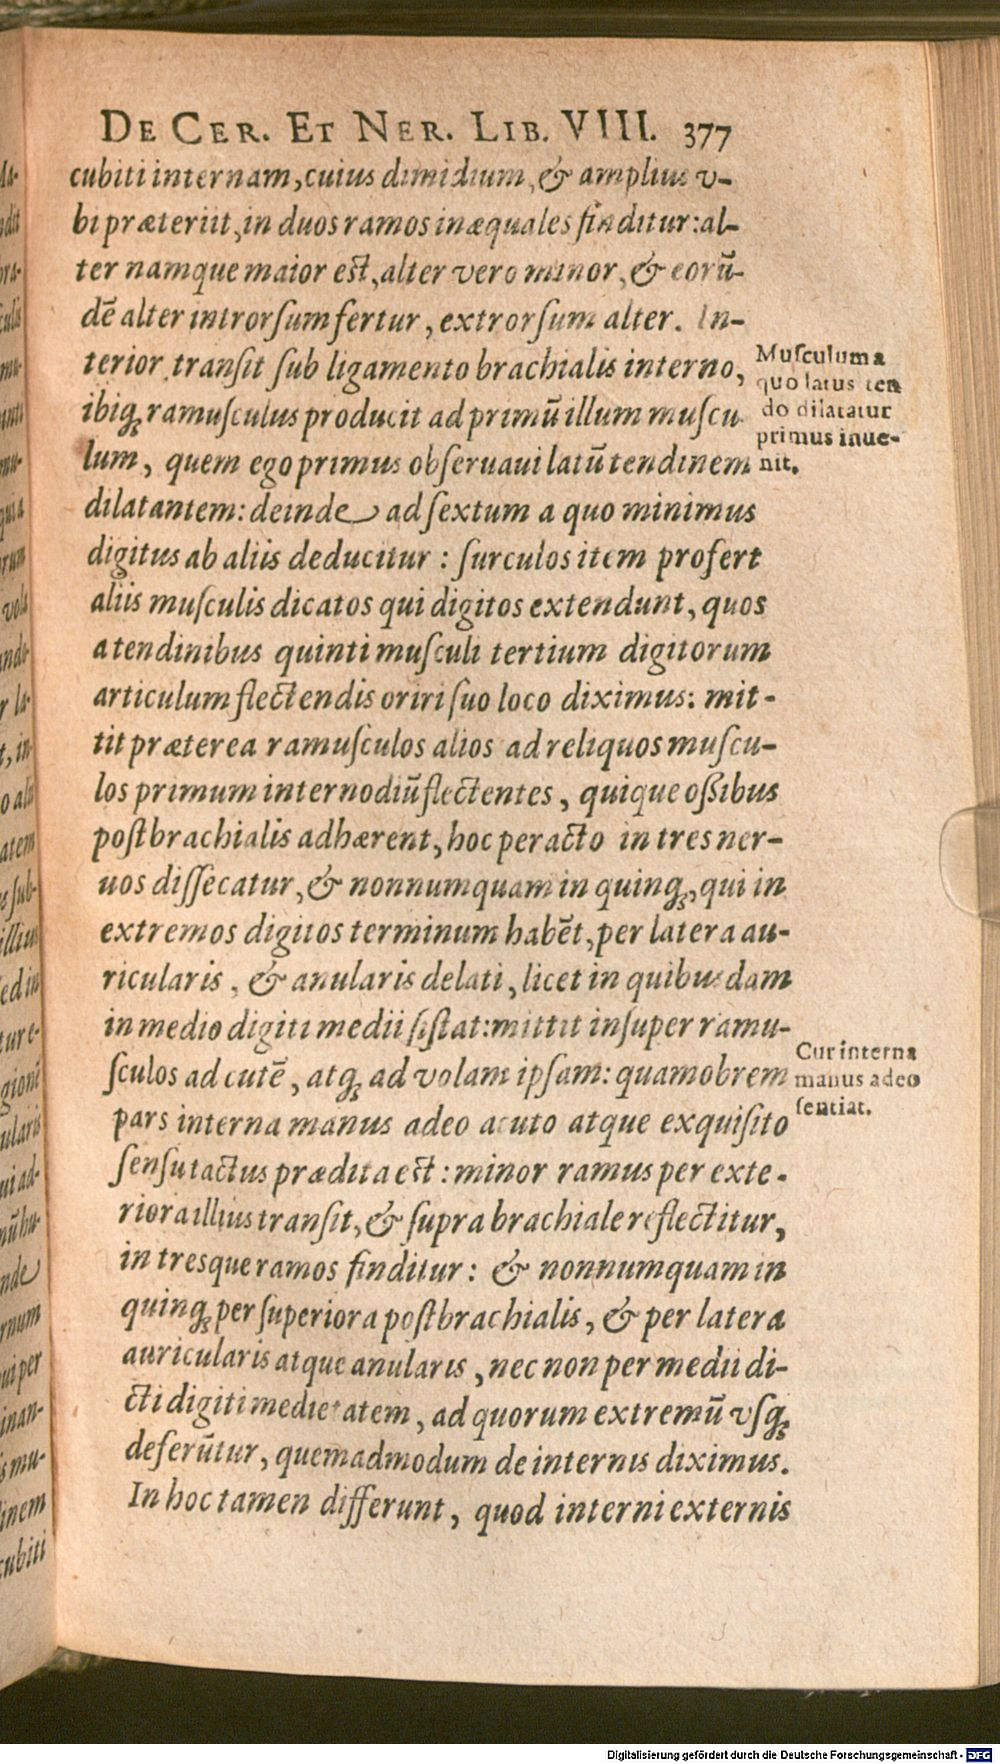 DE CER. ET NER. LIB. VIII. 377
cubiti internam, cuius dimidium, & amplius v-
bi præteriit, in duos ramos inæquales finditur: al-
ter namque maior est, alter vero minor, & eorũ-
dẽ alter introrſum fertur, extrorſum alter. In-
terior tranſit ſub ligamento brachialis interno,
ibiq; ramuſculus producit ad primũ illum muſcu
lum, quem ego primus obſeruaui latũ tendinem
dilatantem: deinde ad ſextum a quo minimus
digitus ab aliis deducitur : ſurculos item profert
aliis muſculis dicatos qui digitos extendunt, quos
a tendinibus quinti muſculi tertium digitorum
articulum flectendis oriri ſuo loco diximus: mit-
tit præterea ramuſculos alios ad reliquos muſcu-
los primum internodiũ flectentes, quique oſſibus
poſtbrachialis adhærent, hoc peracto in tres ner-
uos diſſecatur, & nonnumquam in quinq;, qui in
extremos digitos terminum habẽt, per latera au-
ricularis, & anularis delati, licet in quibusdam
in medio digiti medii ſiſtat: mittit inſuper ramu-
ſculos ad cutẽ, atq; ad volam ipſam: quamobrem
pars interna manus adeo acuto atque exquiſito
ſenſu tactus prædita est: minor ramus per exte-
riora illius tranſit, & ſupra brachiale reflectitur,
in tresque ramos finditur: & nonnumquam in
quinq; per ſuperiora poſtbrachialis, & per latera
auricularis atque anularis, nec non per medii di-
cti digiti medietatem, ad quorum extremũ vſq;
deferũtur, quemadmodum de internis diximus.
In hoc tamen differunt, quod interni externis
Muſculum a
quo latus ten
do dilatatur
primus inue-
nit.
Cur interna
manus adeo
ſentiat.
Digitalisierung gefördert durch die Deutsche Forschungsgemeinschaft - DFG